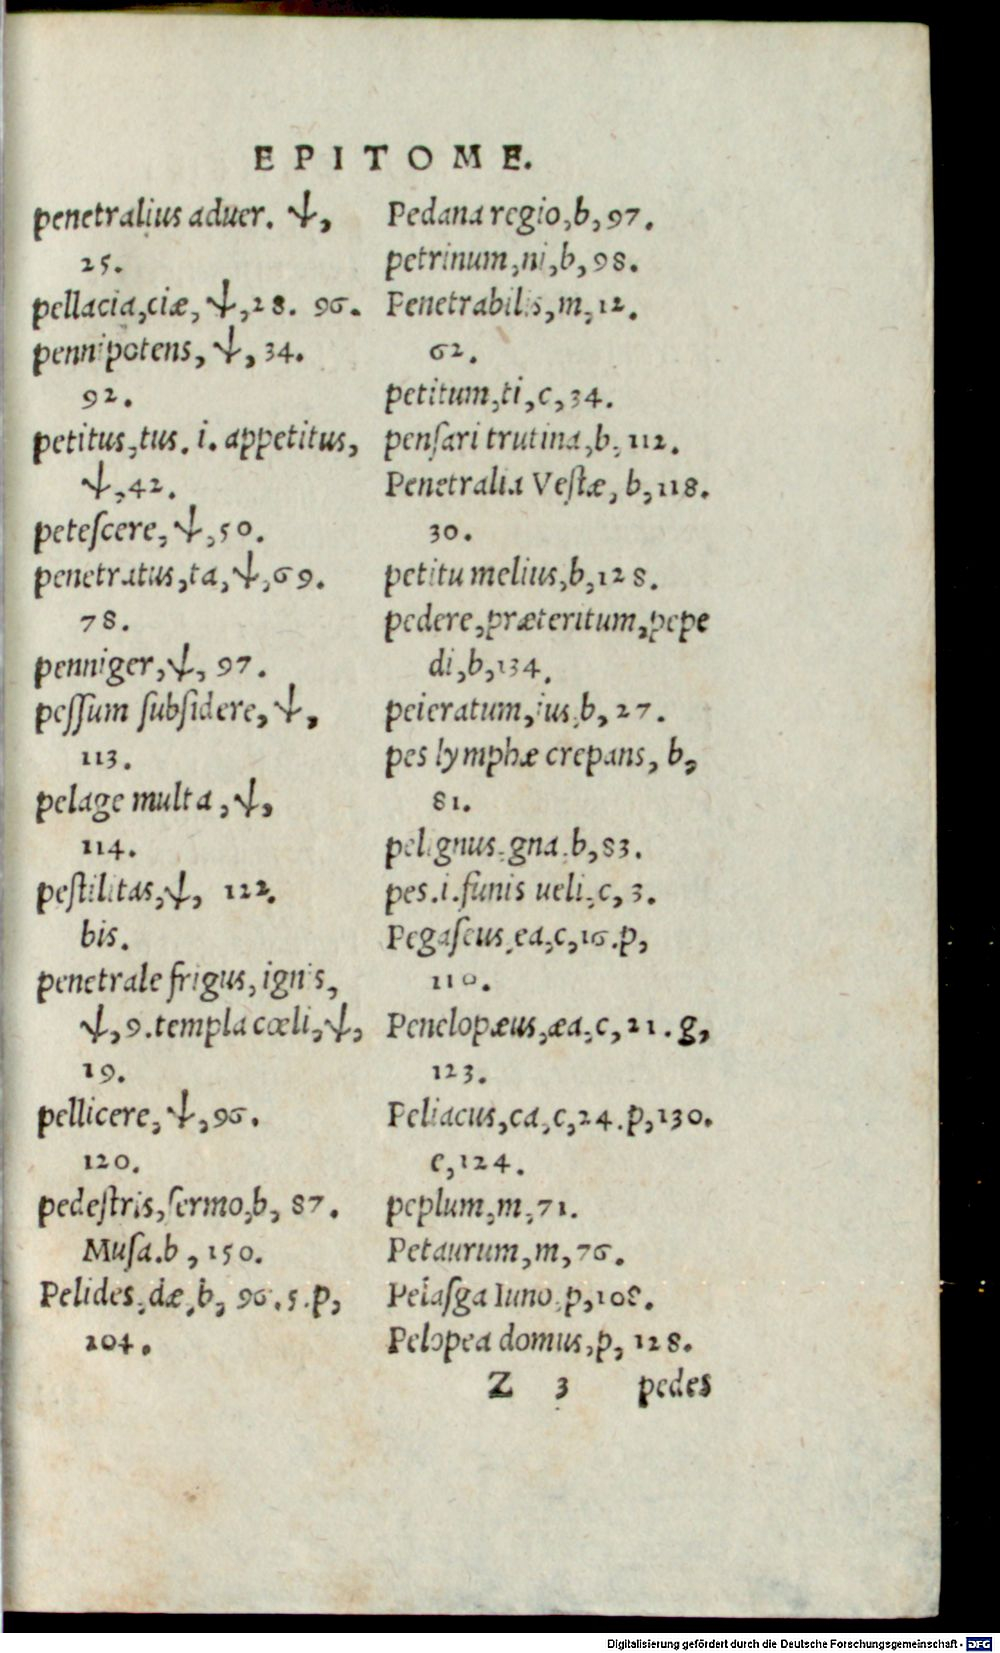 EPITOME.
penetralius aduer. ↓,
25.
pellacia,ciæ, ↓,28. 96.
pennipotens, ↓, 34.
92.
petitus,tus. i. appetitus,
↓,42.
peteſcere, ↓,50.
penetratus,ta,↓,69.
78.
penniger,↓, 97.
peſſum ſubſidere, ↓,
113.
pelage multa ,↓,
114.
peſtilitas,↓, 122.
bis.
penetrale frigus, ignis,
↓,9.templa cœli,↓,
19.
pellicere, ↓,96.
120.
pedeſtris,ſermo,b, 87.
Muſa.b , 150.
Pelides,dæ,b, 96.5.p,
104.
Pedana regio,b,97.
petrinum,ni,b,98.
Penetrabilis,m,12.
62.
petitum,ti,c,34.
penſari trutina,b,112.
Penetralia Veſtæ, b,118.
30.
petitu melius,b,128.
pedere,præteritum,pepe
di,b,134.
peieratum,ius,b,27.
pes lymphæ crepans, b,
81.
pelignus.gna.b,83.
pes.i.funis ueli,c, 3.
Pegaſeus,ea,c,16.p,
110.
Penelopæus,æa,c,21.g,
123.
Peliacus,ca,c,24.p,130.
c,124.
peplum,m,71.
Petaurum,m,76.
Pelaſga Iuno,p,108.
Pelopea domus,p, 128.
Z 3 pedes
Digitalisierung gefördert durch die Deutsche Forschungsgemeinschaft - DFG